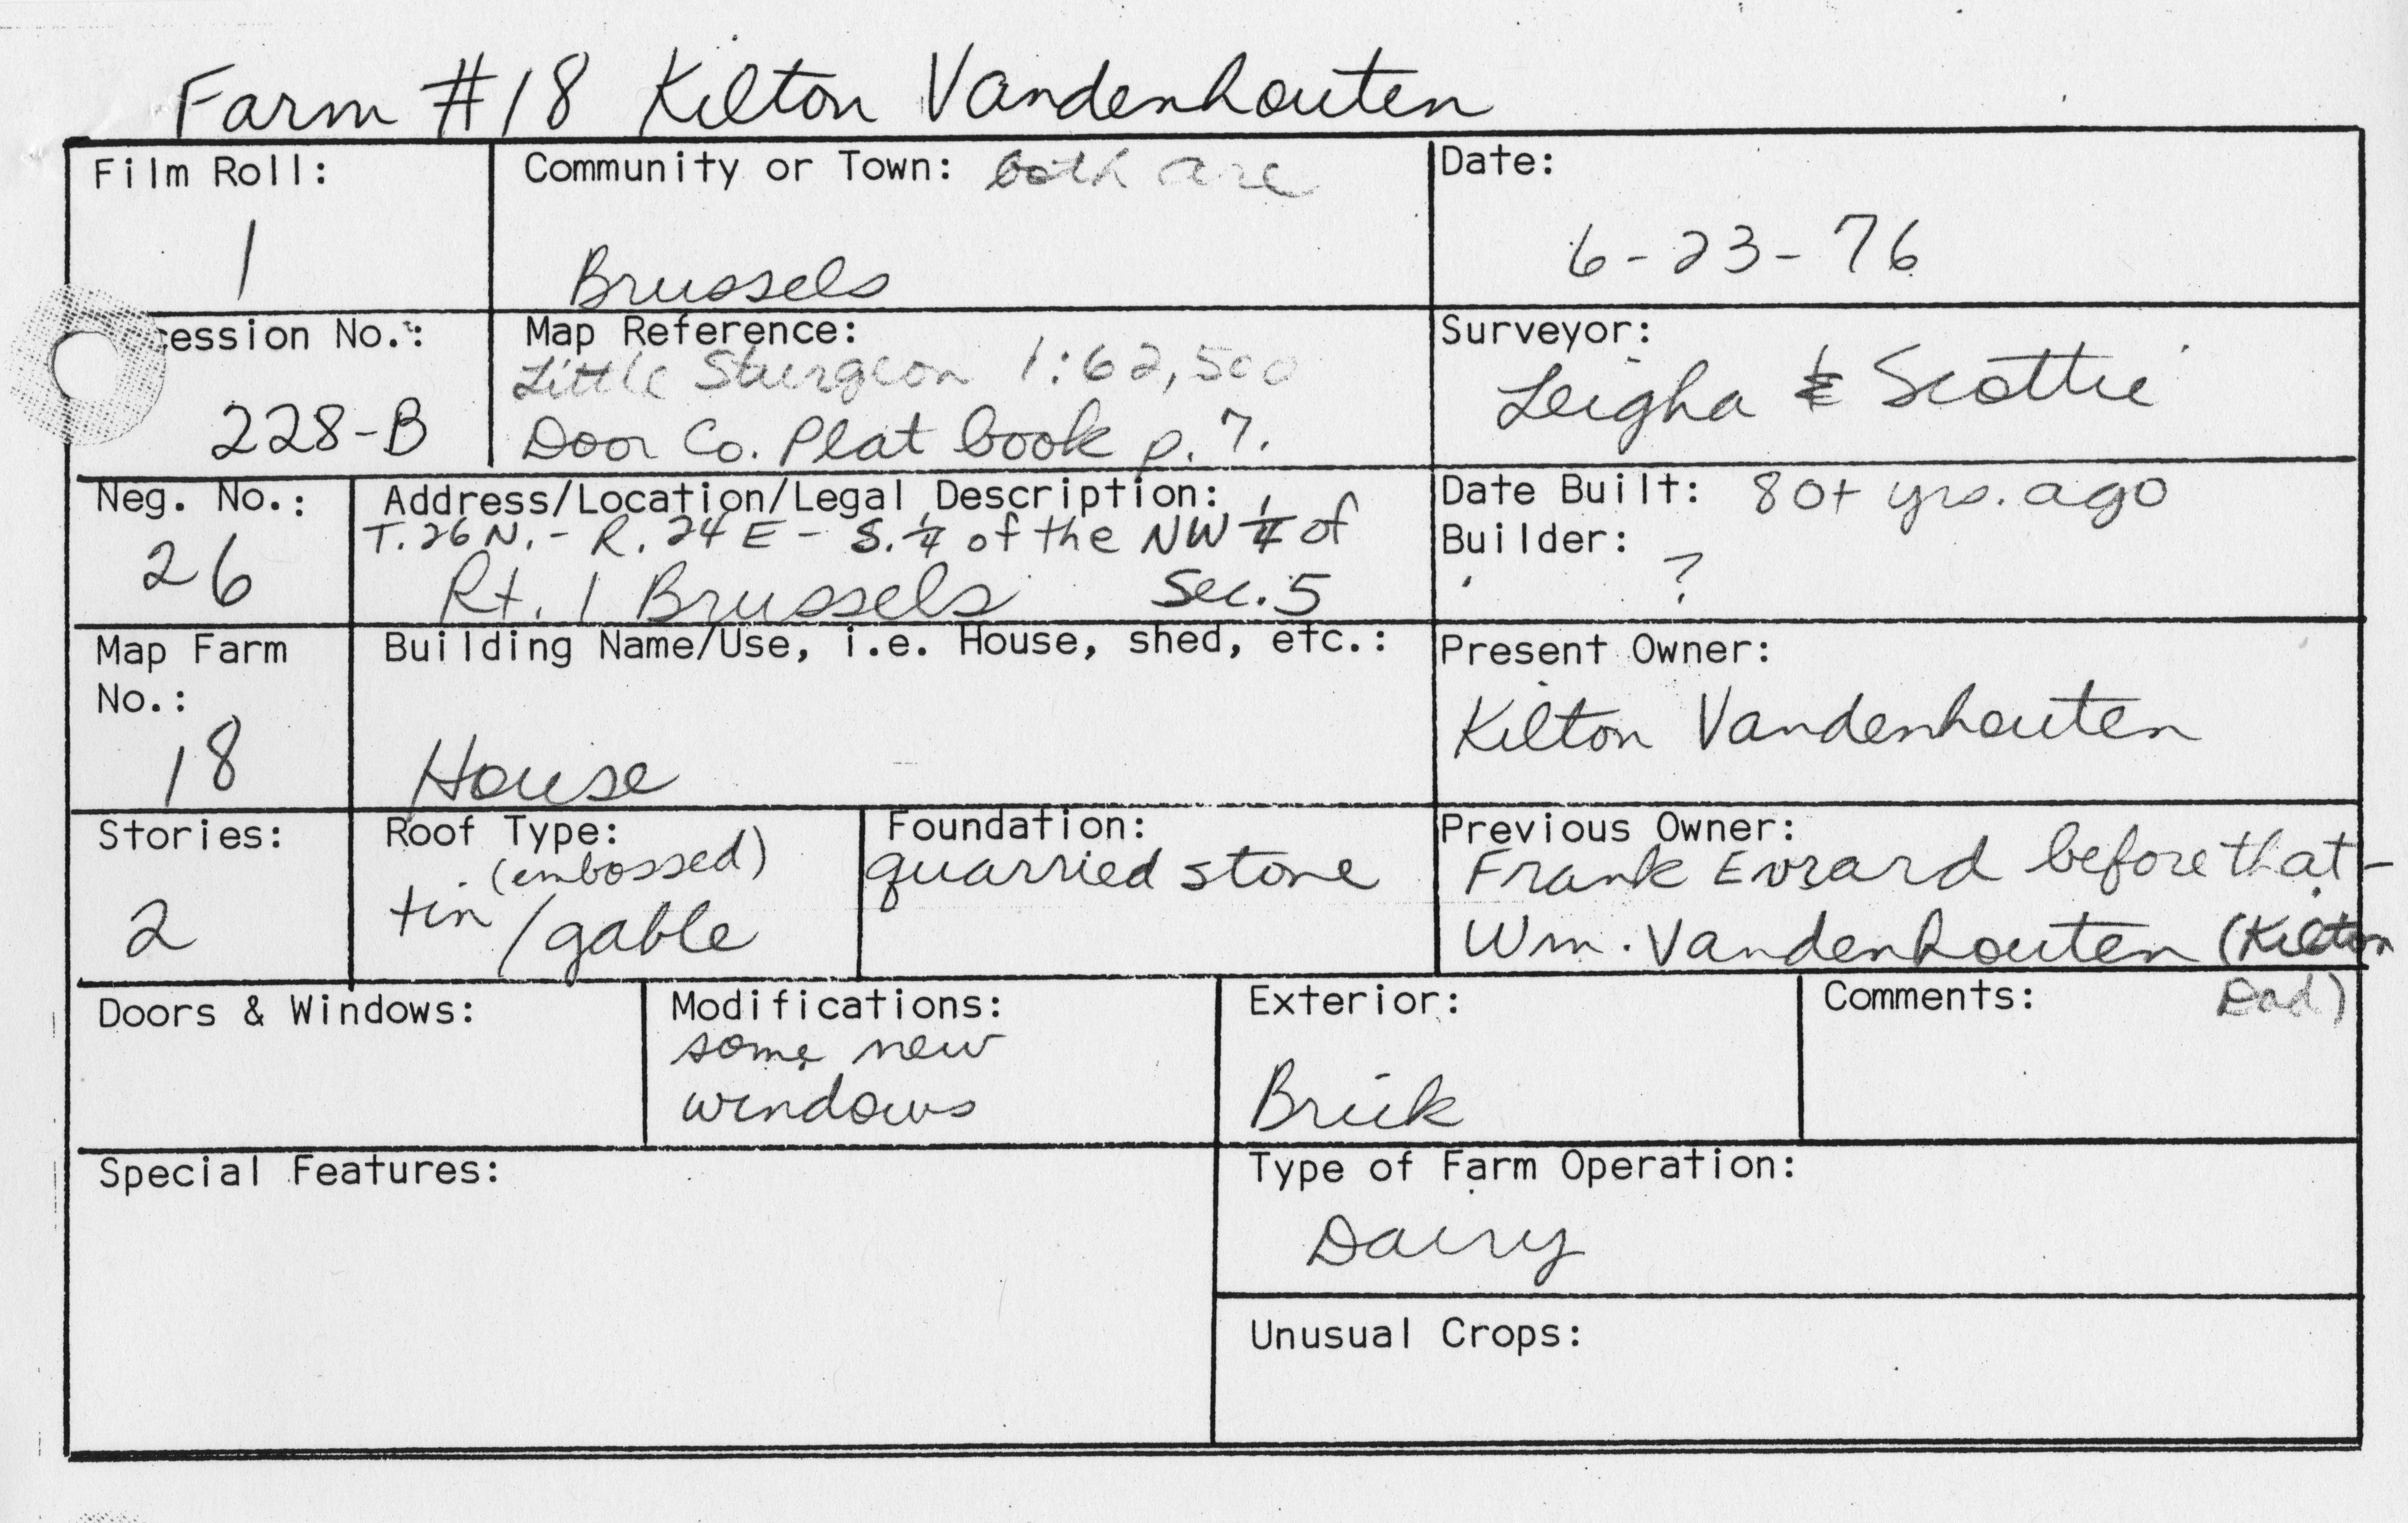 Farm #18 Kilton Vandenhouten
Film Roll:
1
Community or Town: both are
Brussels
Date:
6-23-76
cession No.:
228-B
Map Reference:
Little Sturgeon 1:62,500
Door Co. Plat book p. 7.
Surveyor:
Leigha & Scottie
Neg. No.:
26
Address/Location/Legal Description:
T.26N.- R. 24E - S.¼ of the NW ¼ of
Rt. 1 Brussels Sec. 5
Date Built: 80+ yrs. ago
Builder:
?
Map Farm
No.:
18
Building Name/Use, i.e. House, shed, etc.:
House
Present Owner:
Kilton Vandenhouten
Stories:
2
Roof Type:
(embossed)
tin/gable
Foundation:
quarried stone
Previous Owner:
Frank Evrard before that-
Wm. Vandenhouten (Kilton
Dad)
Doors & Windows:
Modifications:
some new
windows
Exterior:
Brick
Comments:
Special Features:
Type of Farm Operation:
Dairy
Unusual Crops: